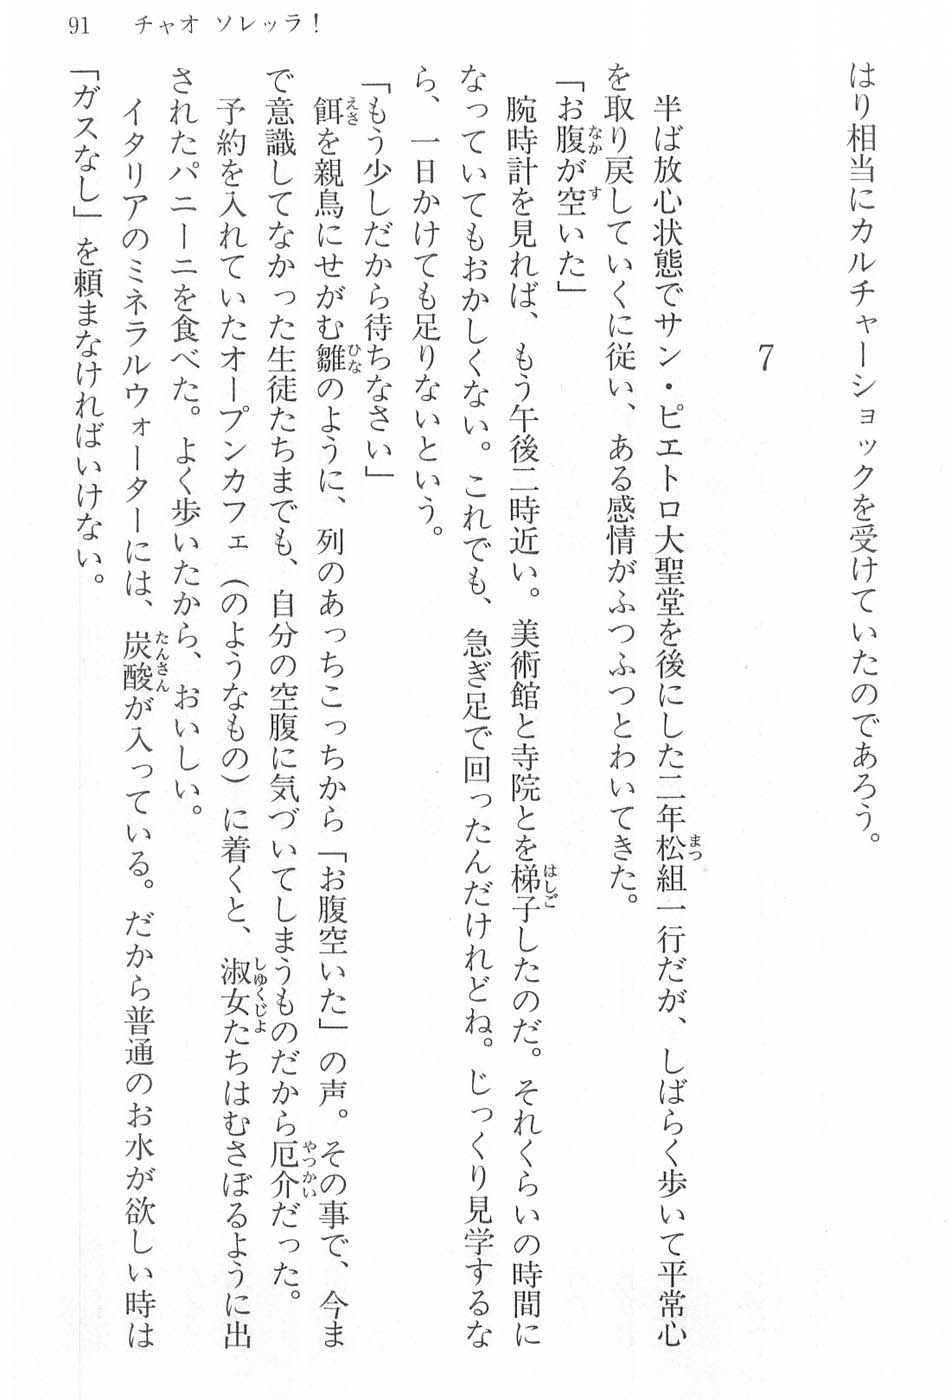 91　チャオ ソレッラ！
はり相当にカルチャーショックを受けていたのであろう。
7
　半ば放心状態でサン・ピエトロ大聖堂を後にした二年松組一行だが、しばらく歩いて平常心
を取り戻していくに従い、ある感情がふつふつとわいてきた。
「お腹が空いた」
　腕時計を見れば、もう午後二時近い。美術館と寺院とを梯子したのだ。それくらいの時間に
なっていてもおかしくない。これでも、急ぎ足で回ったんだけれどね。じっくり見学するな
ら、一日かけても足りないという。
「もう少しだから待ちなさい」
　餌を親鳥にせがむ雛のように、列のあっちこっちから「お腹空いた」の声。その事で、今ま
で意識してなかった生徒たちまでも、自分の空腹に気づいてしまうものだから厄介だった。
　予約を入れていたオープンカフェ（のようなもの）に着くと、淑女たちはむさぼるように出
されたパニーニを食べた。よく歩いたから、おいしい。
　イタリアのミネラルウォーターには、炭酸が入っている。だから普通のお水が欲しい時は
「ガスなし」を頼まなければいけない。